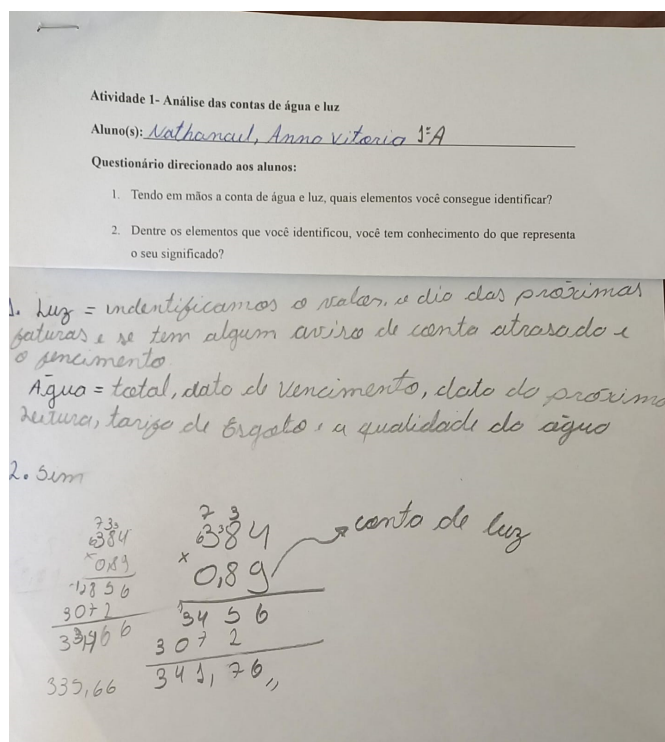 Atividade 1- Análise das contas de água e luz
Aluno(s): Nathanael, Anna Vitoria 1ªA
Questionário direcionado aos alunos:
1. Tendo em mãos a conta de água e luz, quais elementos você consegue identificar?
2. Dentre os elementos que você identificou, você tem conhecimento do que representa
o seu significado?
1. Luz = indentificamos o valor, o dia das próximas
faturas e se tem algum aviso de conta atrasada e
o vencimento.
Água = total, data de vencimento, data da próxima
leitura, tarifa de Esgoto e a qualidade da água
2. Sim
7 3
384
x 0,89
3456
3072
341,76
conta de luz
384
x 0,89
3072
335,66